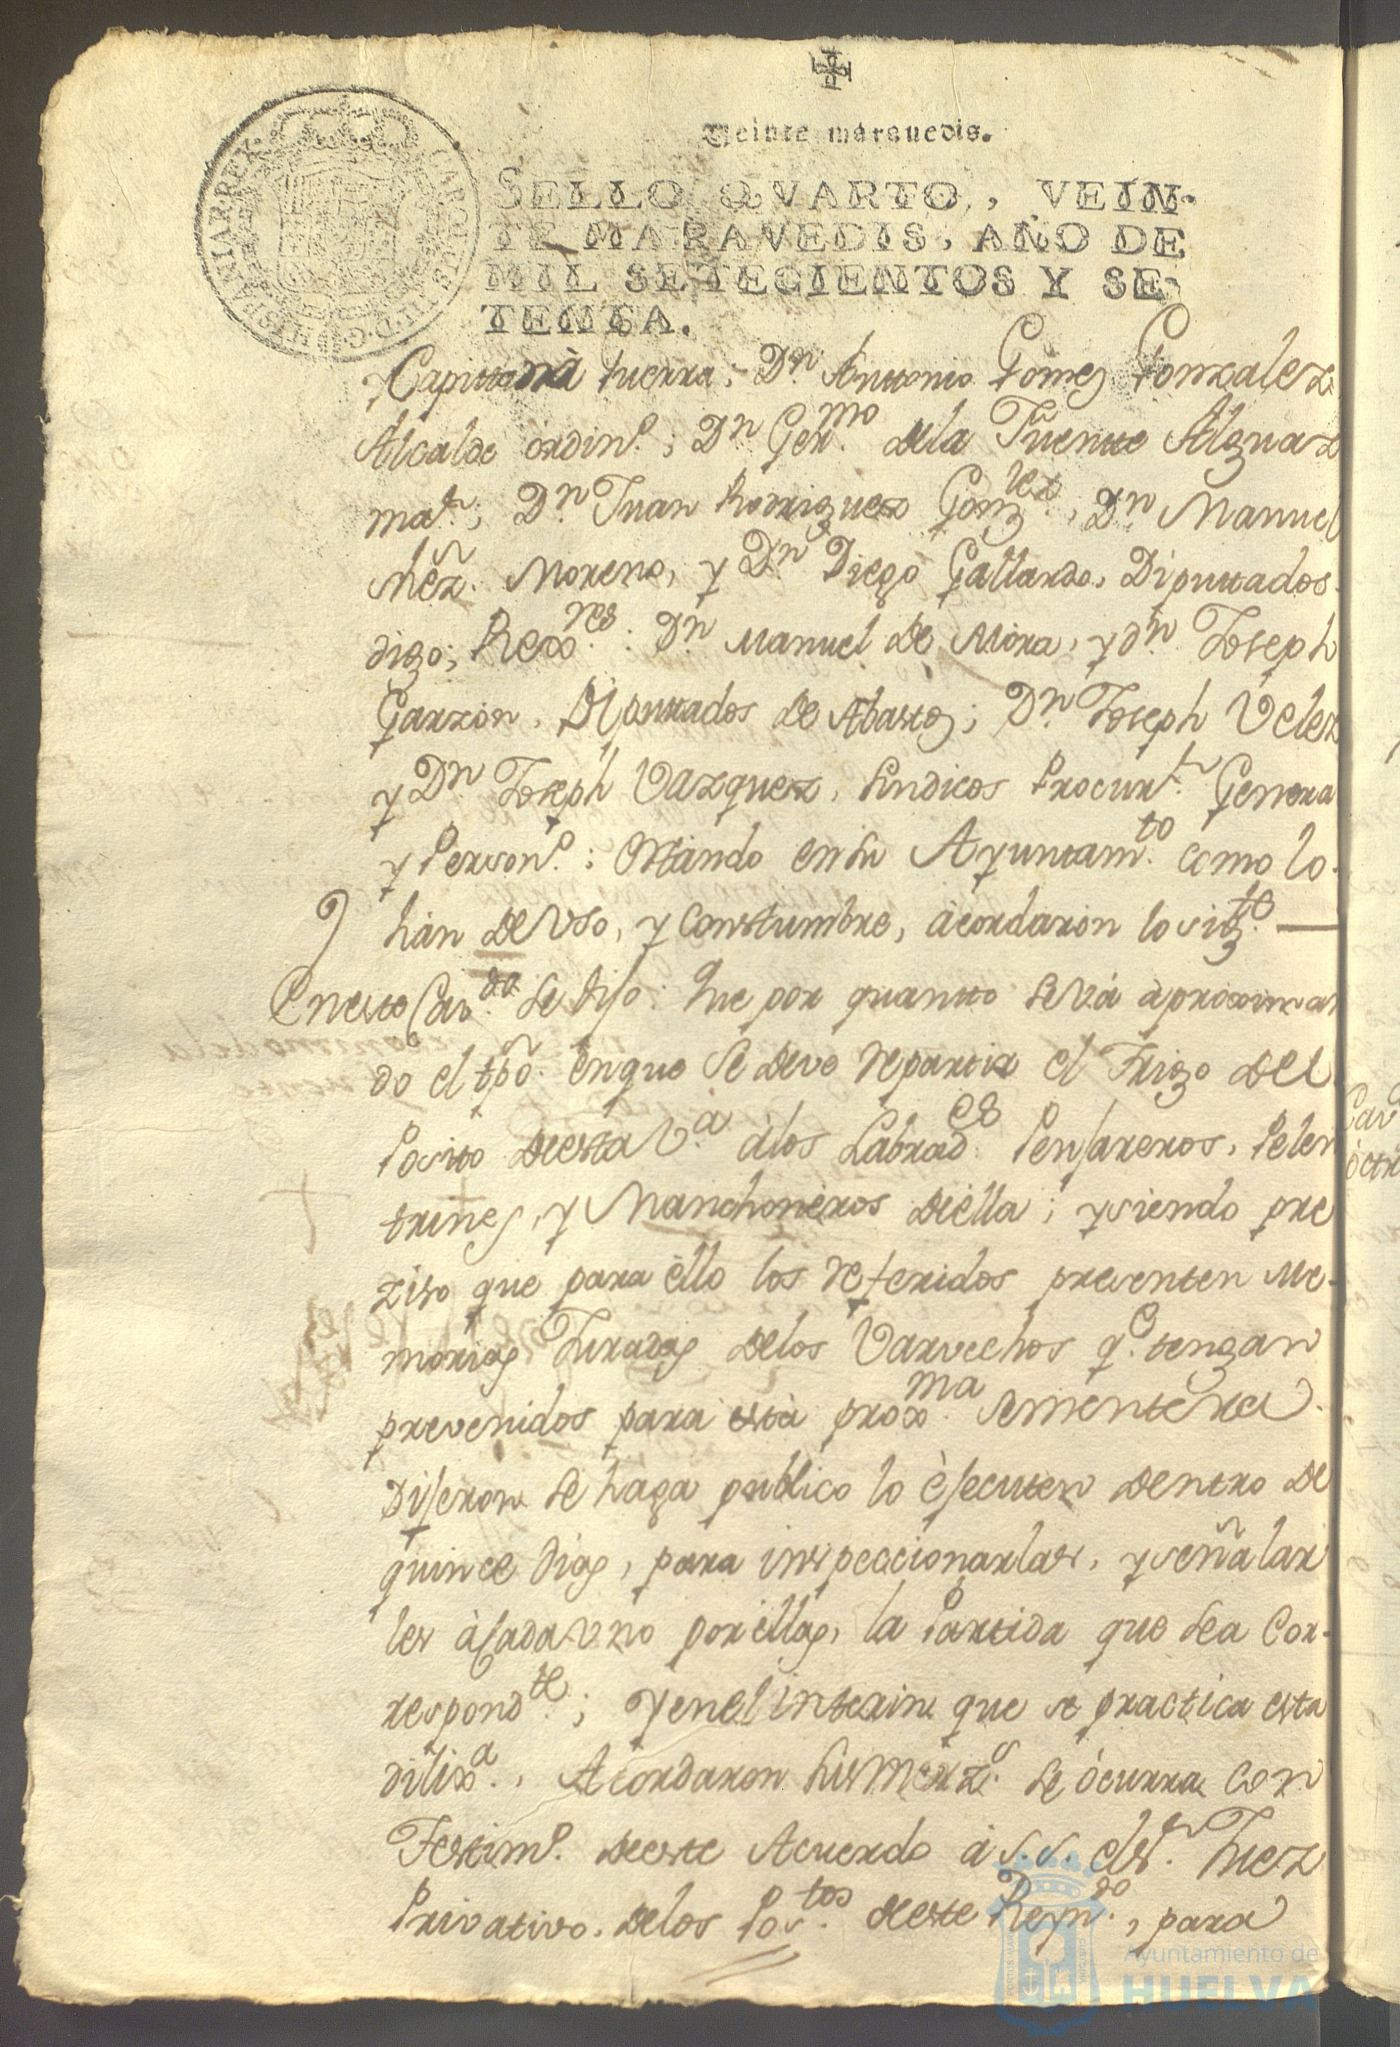 Veinte marauedis.
SELLO QVARTO, VEIN-
TE MARAVEDIS, AÑO DE
MIL SETECIENTOS Y SE-
TENTA.
HISPANIAR.REX. CAROLUS III.D.G.
y Capitan à Guerra; Dn. Antonio Gomez Gonzalez
Alcalde ordino.; Dn Germo. dela Fuente Alguaz
mar.; Dn. Juan Rodriguez Gonzlez., Dn Manuel
Mẽz. Moreno, y Dn. Diego Gallardo, Diputados
digo; Rexres.: Dn Manuel de Mora, y dn. Joseph
Garzon, Diputados de Abastos; Dn. Joseph Velez
y Dn Joseph Vazquez, Sindicos Procurr. Genera
y Persono.; estando en su Ayuntamto. como lo
han de Vso, y Constumbre, àcordaron lo sigte.
En este Cavdo. se dijo: Que por quanto se và àproximan
do el tp̃o. en que se deve repartir el Trigo del
Posito de esta Va. à los Labrades. Penjareros, Pelen
trines, y Manchoneros de èlla; y siendo pre
ziso que para èllo los referidos presenten Me-
morias Juradas delos Varvechos qe. tengan
prevenidos para està proxma. sementera.
Dijeron se haga publico lo èjecuten dentro de
quince dias, para inspeccionarlas, y señalar
les à cada vno por èllas, la Partida que sea Cor-
respondte.; y en el interin que se practica esta
dilixa., Acordaron sus merzs. se òcurra con
Testimo. de este Acuerdo à S.S. el Sr. Juez
Privativo, delos Postos. de este Reyndo., para
Cav
Ayuntamiento de
HUELVA